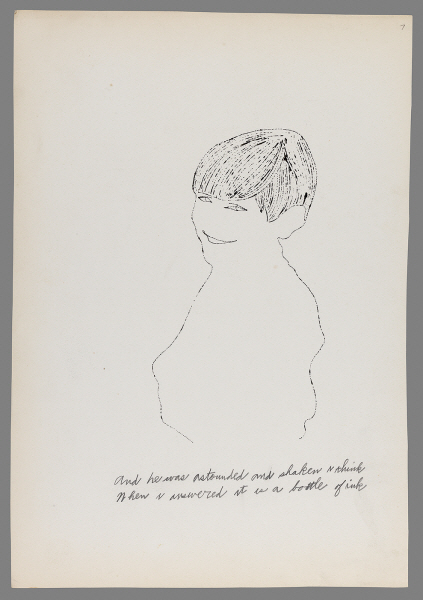 And he was astounded and shaken i think
When i answered it is a bottle of ink